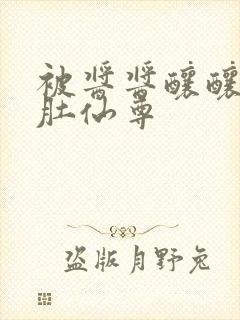 被酱酱酿酿
肚仙尊
盗版月野兔